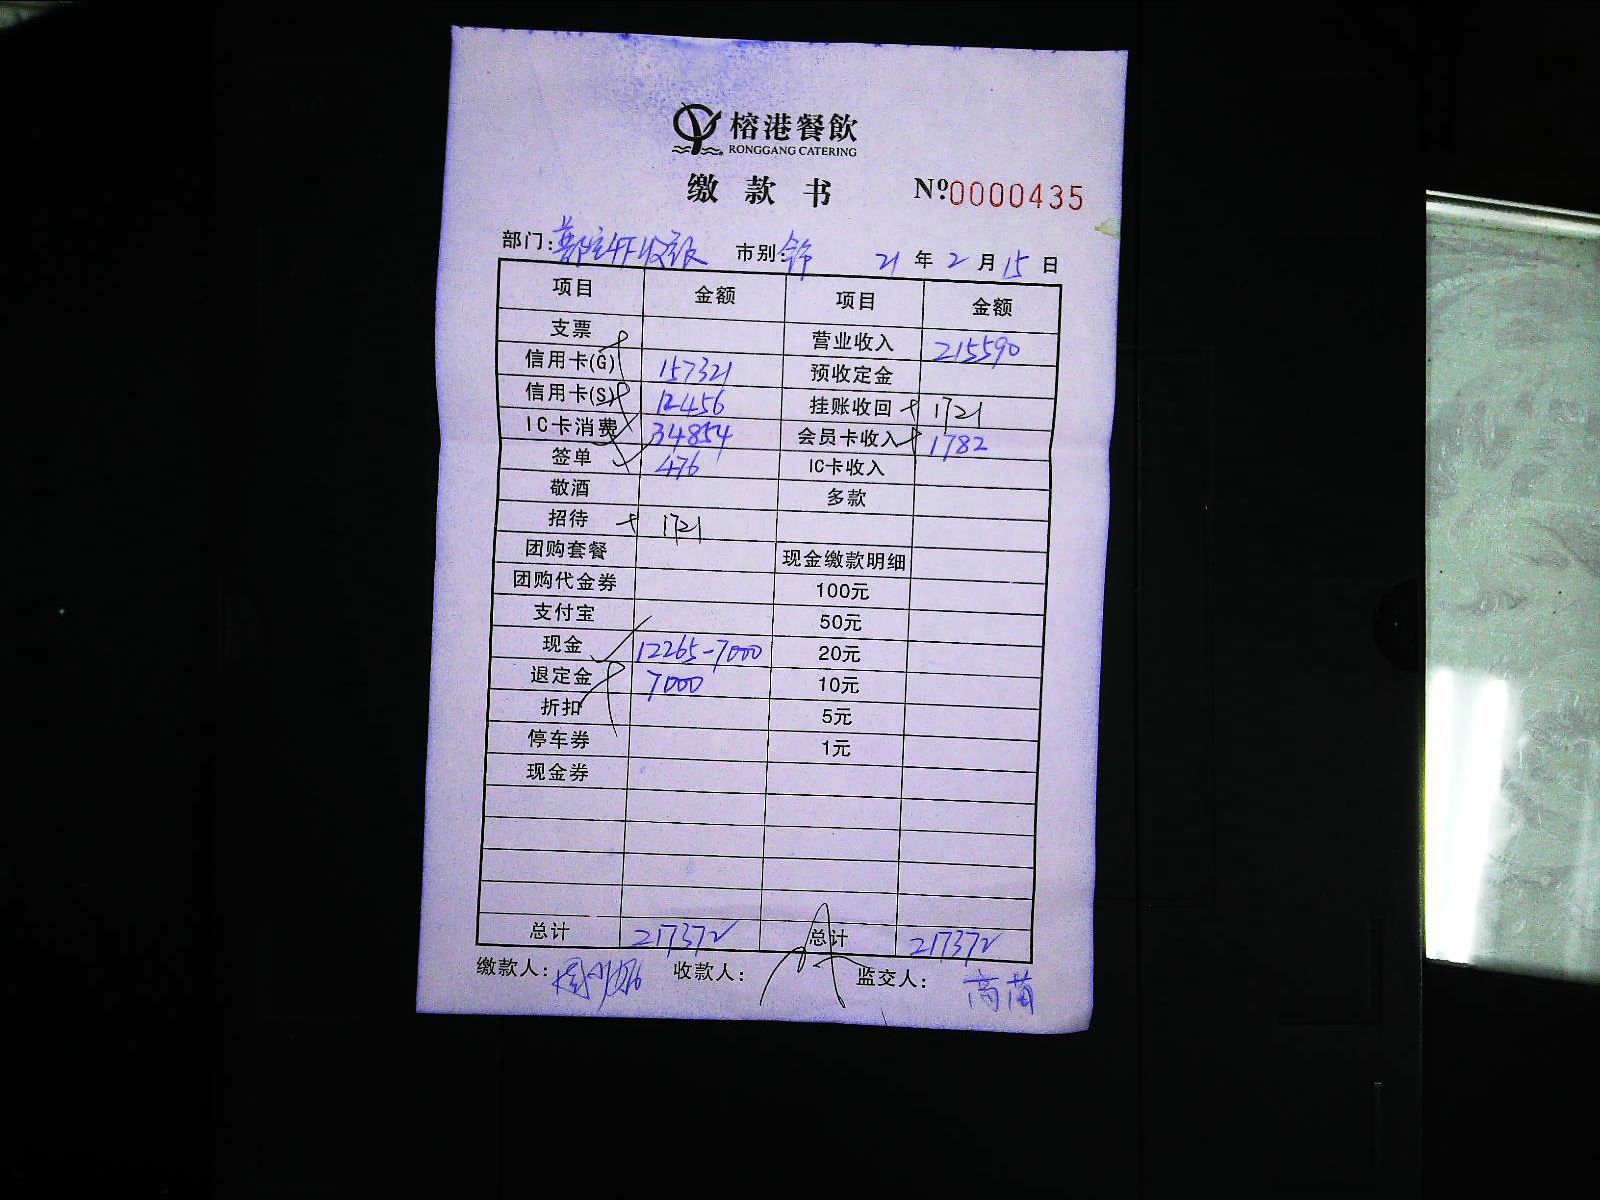 榕港餐飲
RONGGANG CATERING
缴款书 Nº.0000435
部门: 市别: 21年2月15日
项目 金额 项目 金额
支票 营业收入 215590
信用卡(G) 157321 预收定金
信用卡(S) 12456 挂账收回 1721
IC卡消费 34854 会员卡收入 1782
签单 476 IC卡收入
敬酒 多款
招待 1721
团购套餐 现金缴款明细
团购代金券 100元
支付宝 50元
现金 12265-7000 20元
退定金 7000 10元
折扣 5元
停车券 1元
现金券
总计 217372 总计 217372
缴款人: 收款人: 监交人: